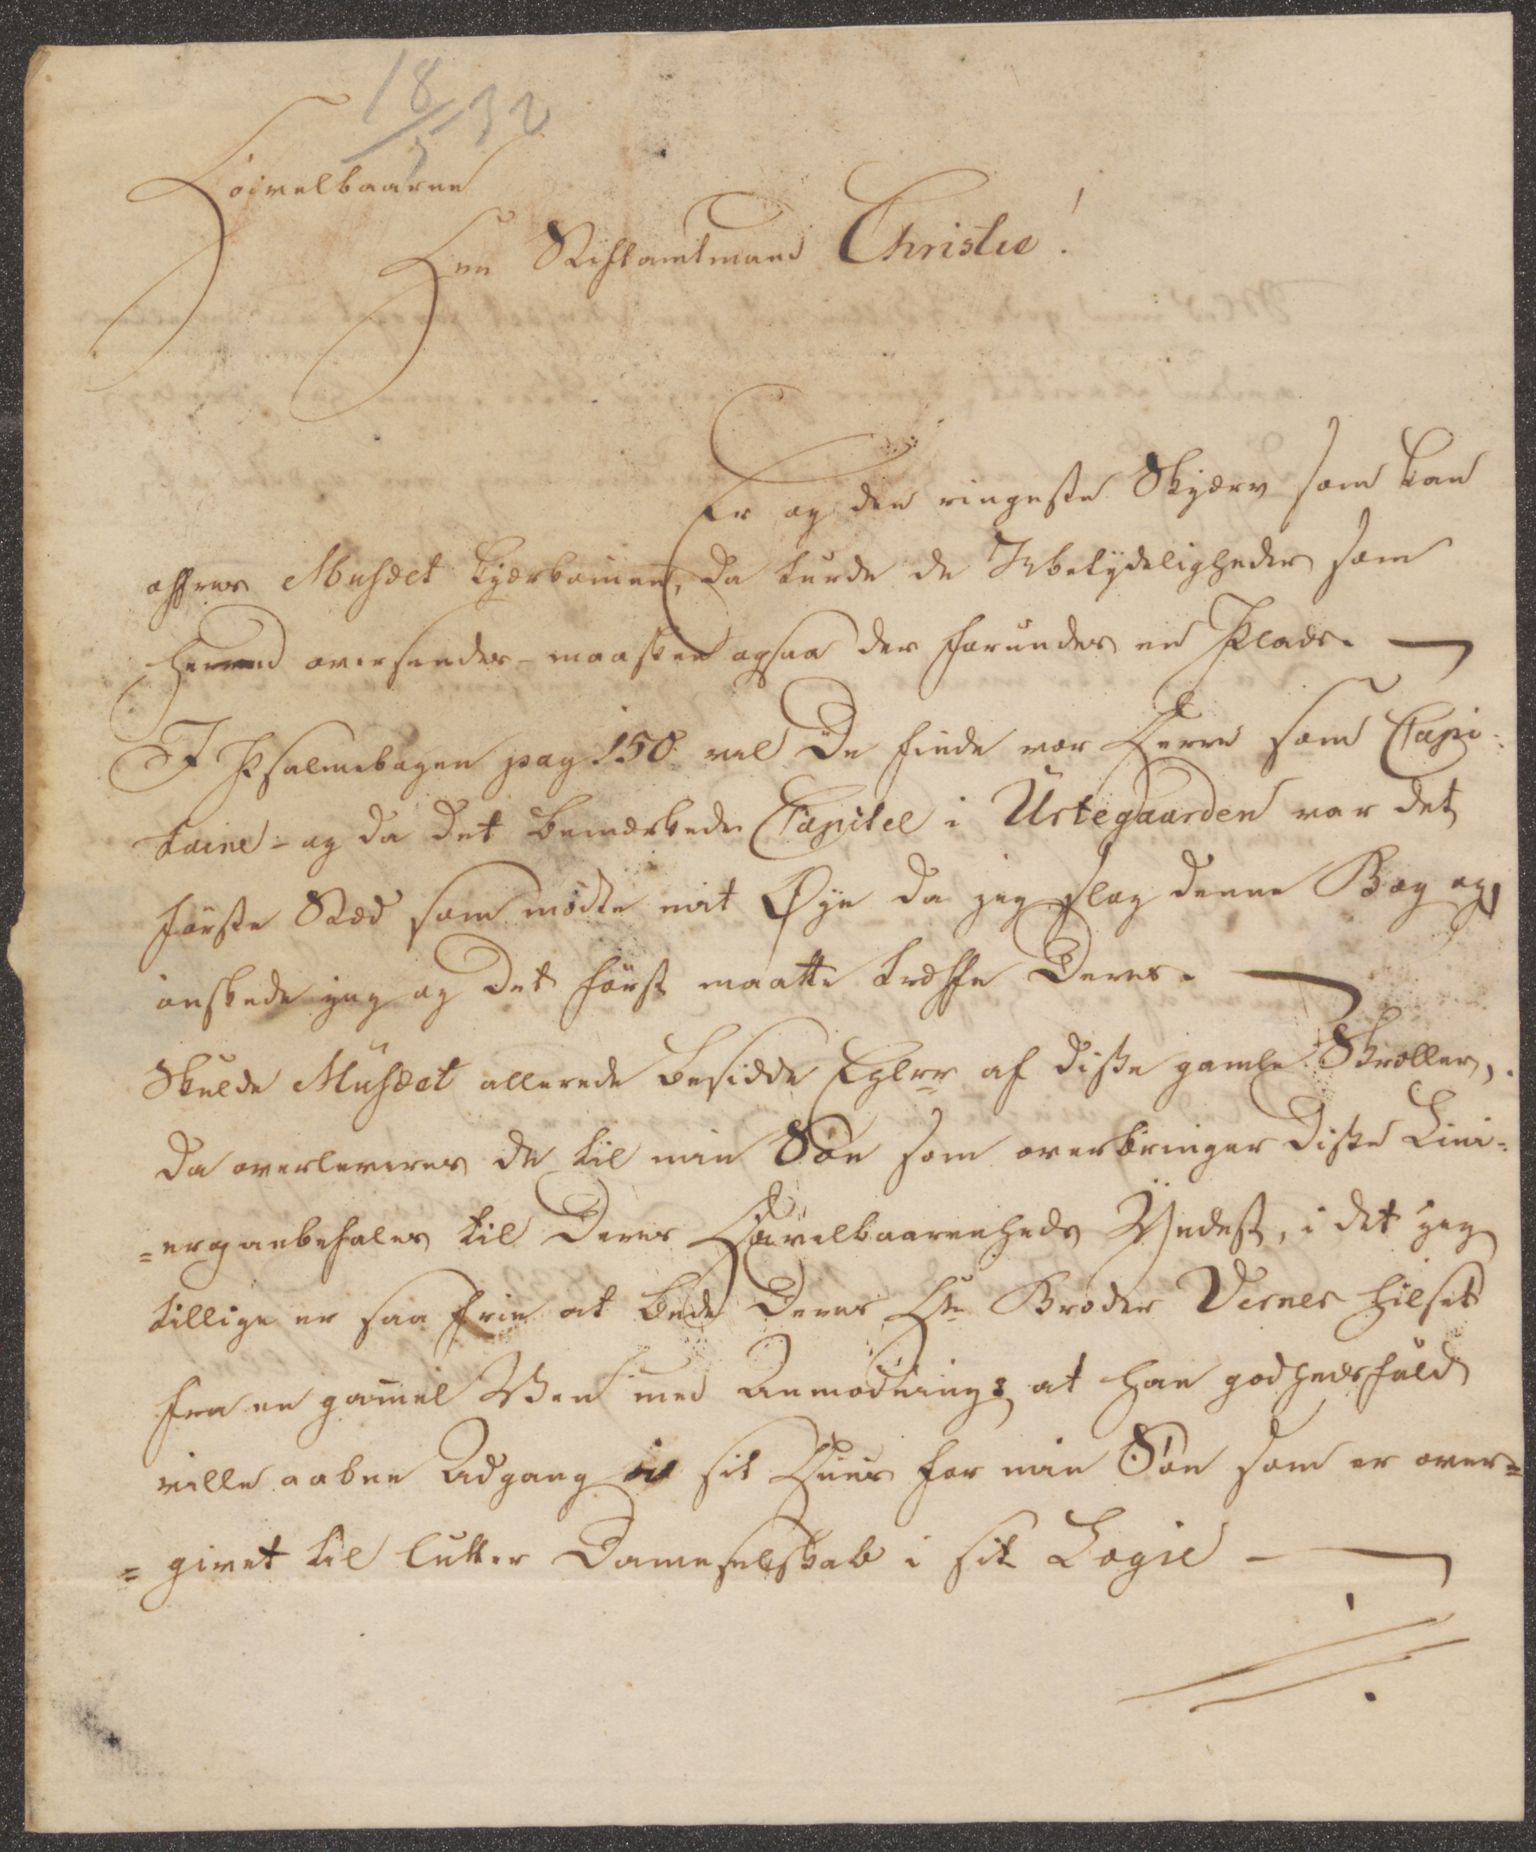 18/5 32
Høivelbaarne
Hrr Stiftamtmand Christie!
Er og den ringeste Skjærv som kan
offres Musæet kjærkomen, da turde de Ubetydeligheder som
herved oversendes - maaskee ogsaa der forundes en Plads. —
I Psalmebogen pag 150 vil De finde vor Herre som Capi-
taine - og da det bemærkede Capitel i Urtegaarden var det
første Stæd som mødte mit Øye da jeg slog denne Bog op
ønskede jeg og Det først maatte træffe Deres. —
Skulde Musæet allerede besidde Eglrr af disse gamle Skroller,
da overleveres de til min Søn som overbringer disse Lini-
=er og anbefales til Deres Høivelbaarenheds Yndest, i det jeg
tillige er saa frie at bede Deres Hr Broder Verner hilset
fra en gammel Ven med Anmodning at han godhedsfuld
ville aabne Adgang i sit Huus for min Søn som er over=
=givet til lutter Dameselskab i sit Logie —